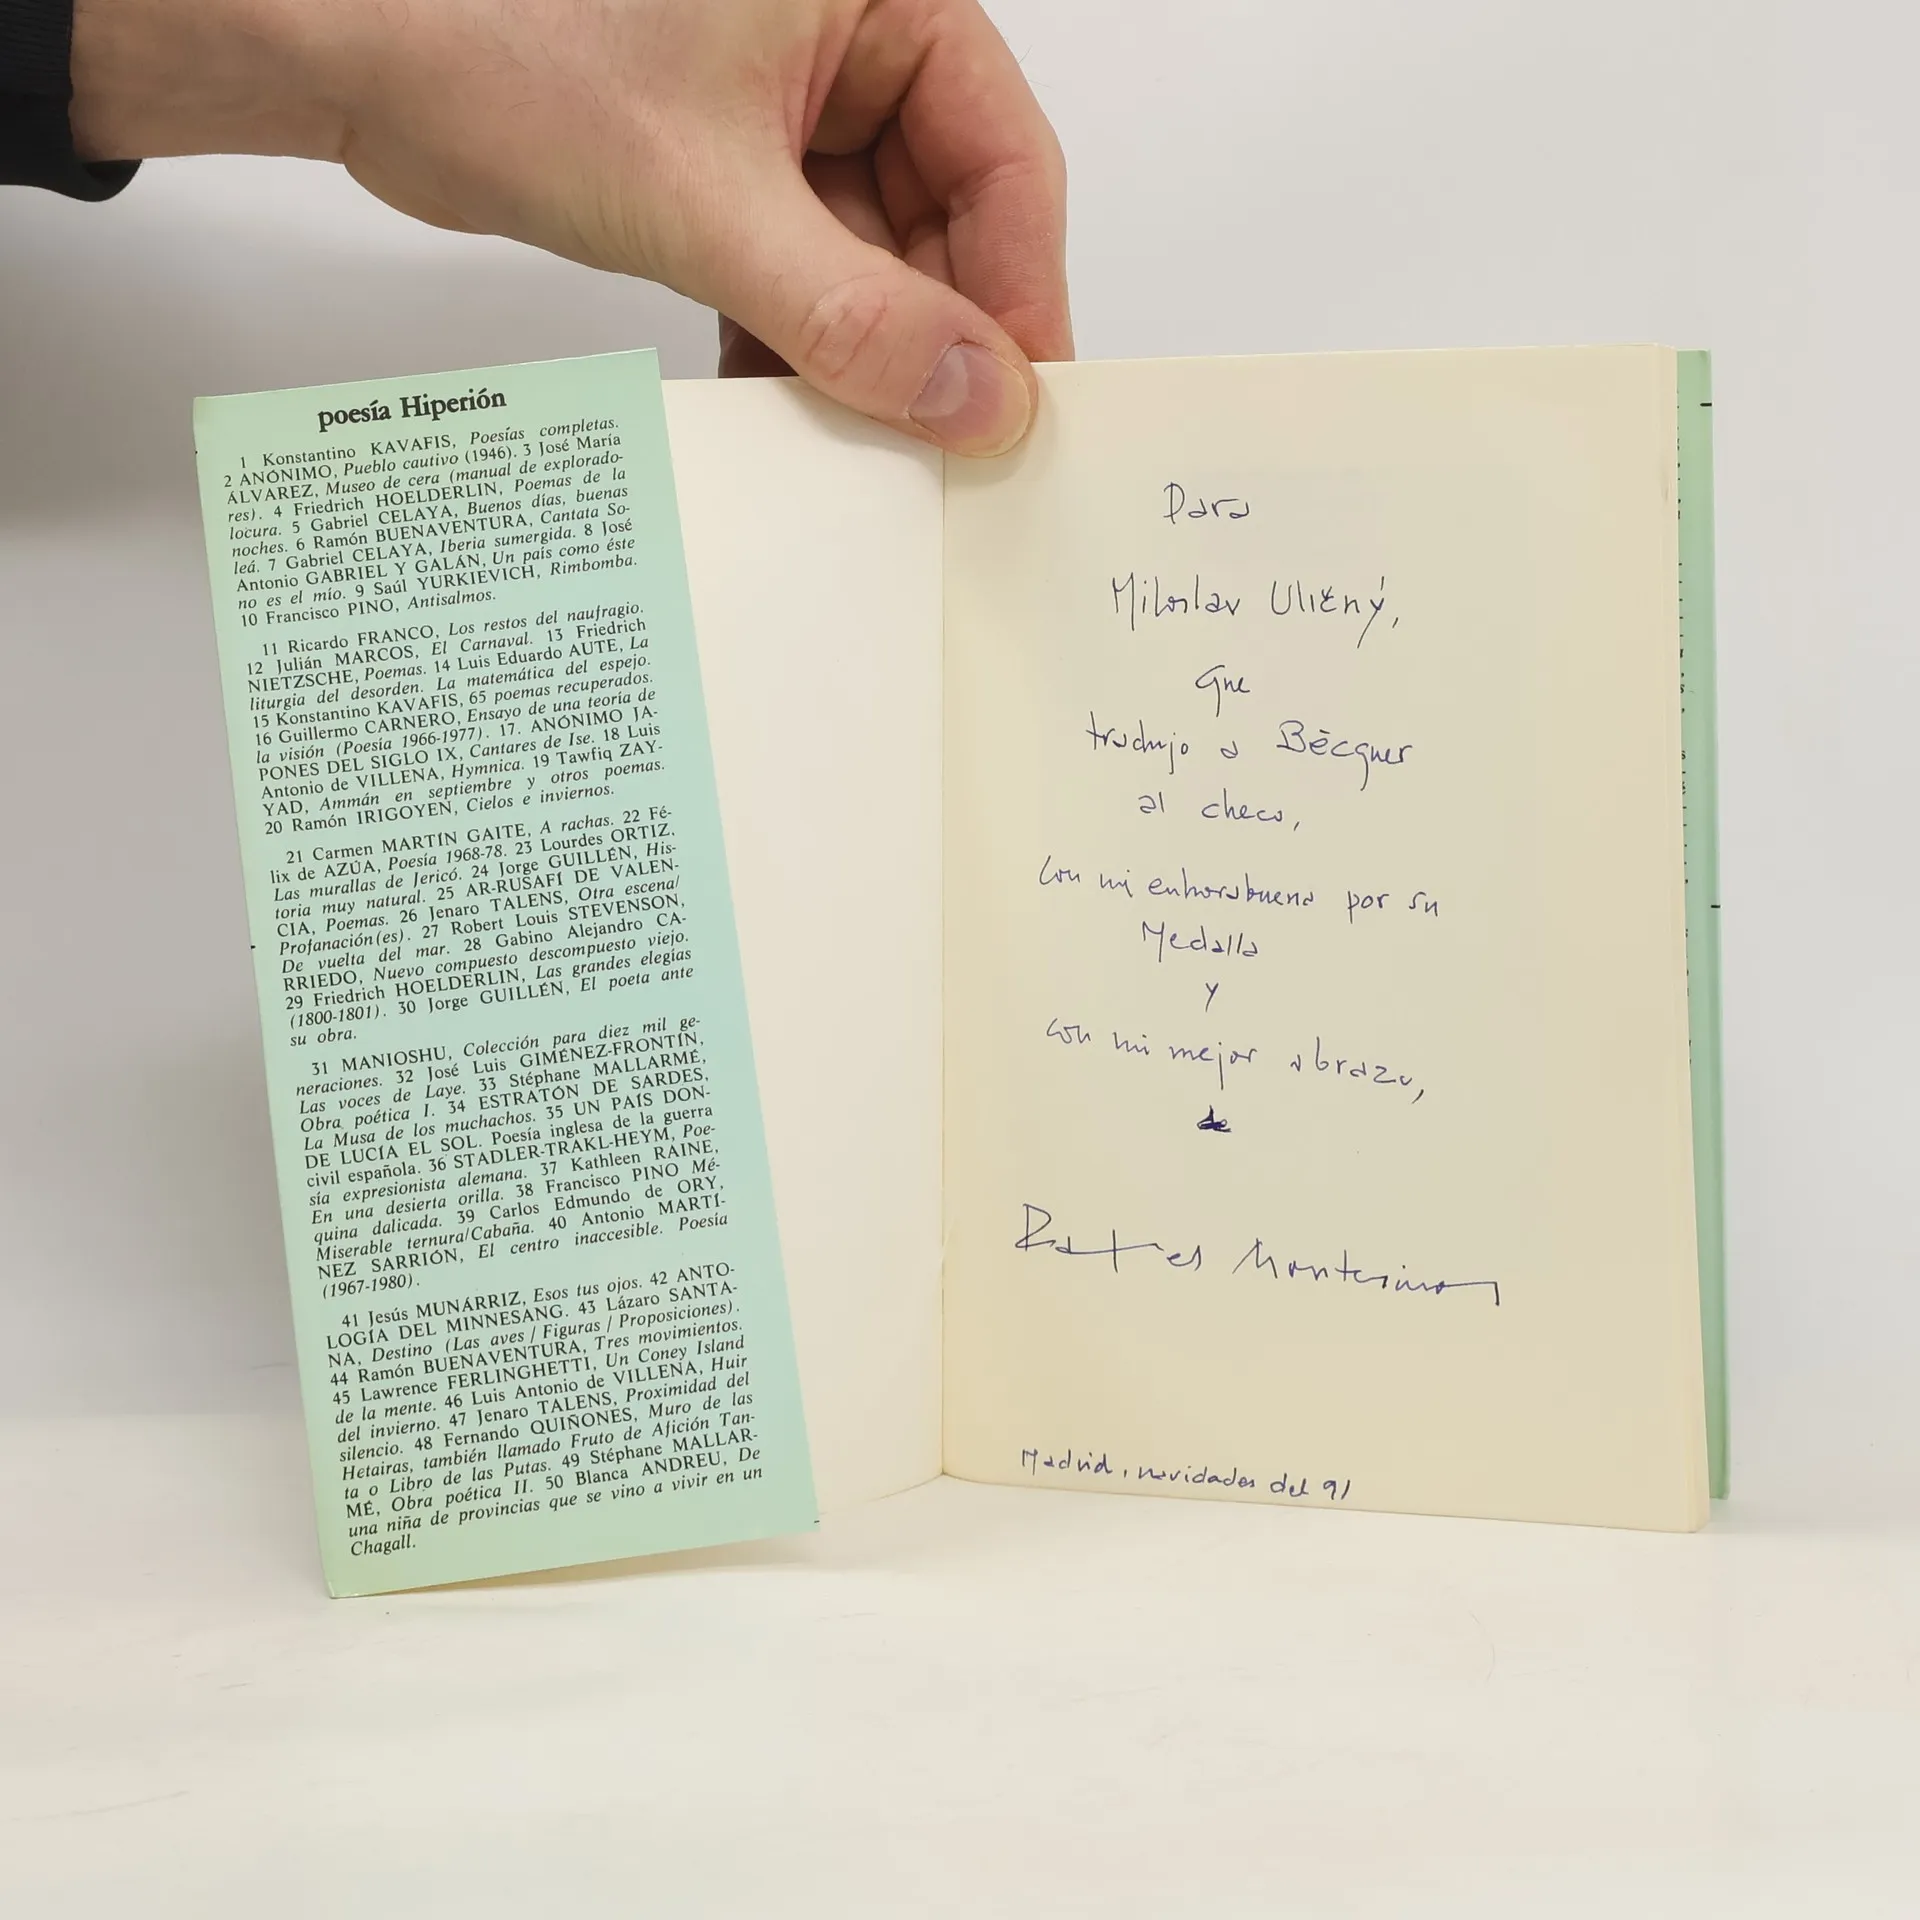 poesía Hiperión
1 Konstantino KAVAFIS, Poesías completas.
2 ANÓNIMO, Pueblo cautivo (1946). 3 José María
ÁLVAREZ, Museo de cera (manual de explorado-
res). 4 Friedrich HOELDERLIN, Poemas de la
locura. 5 Gabriel CELAYA, Buenos días, buenas
noches. 6 Ramón BUENAVENTURA, Cantata So-
leá. 7 Gabriel CELAYA, Iberia sumergida. 8 José
Antonio GABRIEL Y GALÁN, Un país como éste
no es el mío. 9 Saúl YURKIEVICH, Rimbomba.
10 Francisco PINO, Antisalmos.
11 Ricardo FRANCO, Los restos del naufragio.
12 Julián MARCOS, El Carnaval. 13 Friedrich
NIETZSCHE, Poemas. 14 Luis Eduardo AUTE, La
liturgia del desorden. La matemática del espejo.
15 Konstantino KAVAFIS, 65 poemas recuperados.
16 Guillermo CARNERO, Ensayo de una teoría de
la visión (Poesía 1966-1977). 17. ANÓNIMO JA-
PONES DEL SIGLO IX, Cantares de Ise. 18 Luis
Antonio de VILLENA, Hymnica. 19 Tawfiq ZAY-
YAD, Ammán en septiembre y otros poemas.
20 Ramón IRIGOYEN, Cielos e inviernos.
21 Carmen MARTÍN GAITE, A rachas. 22 Fé-
lix de AZÚA, Poesía 1968-78. 23 Lourdes ORTIZ,
Las murallas de Jericó. 24 Jorge GUILLÉN, His-
toria muy natural. 25 AR-RUSAFI DE VALEN-
CIA, Poemas. 26 Jenaro TALENS, Otra escena/
Profanación(es). 27 Robert Louis STEVENSON,
De vuelta del mar. 28 Gabino Alejandro CA-
RRIEDO, Nuevo compuesto descompuesto viejo.
29 Friedrich HOELDERLIN, Las grandes elegías
(1800-1801). 30 Jorge GUILLÉN, El poeta ante
su obra.
31 MANIOSHU, Colección para diez mil ge-
neraciones. 32 José Luis GIMÉNEZ-FRONTÍN,
Las voces de Laye. 33 Stéphane MALLARMÉ,
Obra poética I. 34 ESTRATÓN DE SARDES,
La Musa de los muchachos. 35 UN PAÍS DON-
DE LUCÍA EL SOL. Poesía inglesa de la guerra
civil española. 36 STADLER-TRAKL-HEYM, Poe-
sía expresionista alemana. 37 Kathleen RAINE,
En una desierta orilla. 38 Francisco PINO Mé-
quina dalicada. 39 Carlos Edmundo de ORY,
Miserable ternura/Cabaña. 40 Antonio MARTÍ-
NEZ SARRIÓN, El centro inaccesible. Poesía
(1967-1980).
41 Jesús MUNÁRRIZ, Esos tus ojos. 42 ANTO-
LOGÍA DEL MINNESANG. 43 Lázaro SANTA-
NA, Destino (Las aves / Figuras / Proposiciones).
44 Ramón BUENAVENTURA, Tres movimientos.
45 Lawrence FERLINGHETTI, Un Coney Island
de la mente. 46 Luis Antonio de VILLENA, Huir
del invierno. 47 Jenaro TALENS, Proximidad del
silencio. 48 Fernando QUIÑONES, Muro de las
Hetairas, también llamado Fruto de Afición Tan-
ta o Libro de las Putas. 49 Stéphane MALLAR-
MÉ, Obra poética II. 50 Blanca ANDREU, De
una niña de provincias que se vino a vivir en un
Chagall.
Para
Miloslav Uličný,
que
tradujo a Bécquer
al checo,
con mi enhorabuena por su
Medalla
y
con mi mejor abrazo,
de
Rafael Montesinos
Madrid, navidades del 91